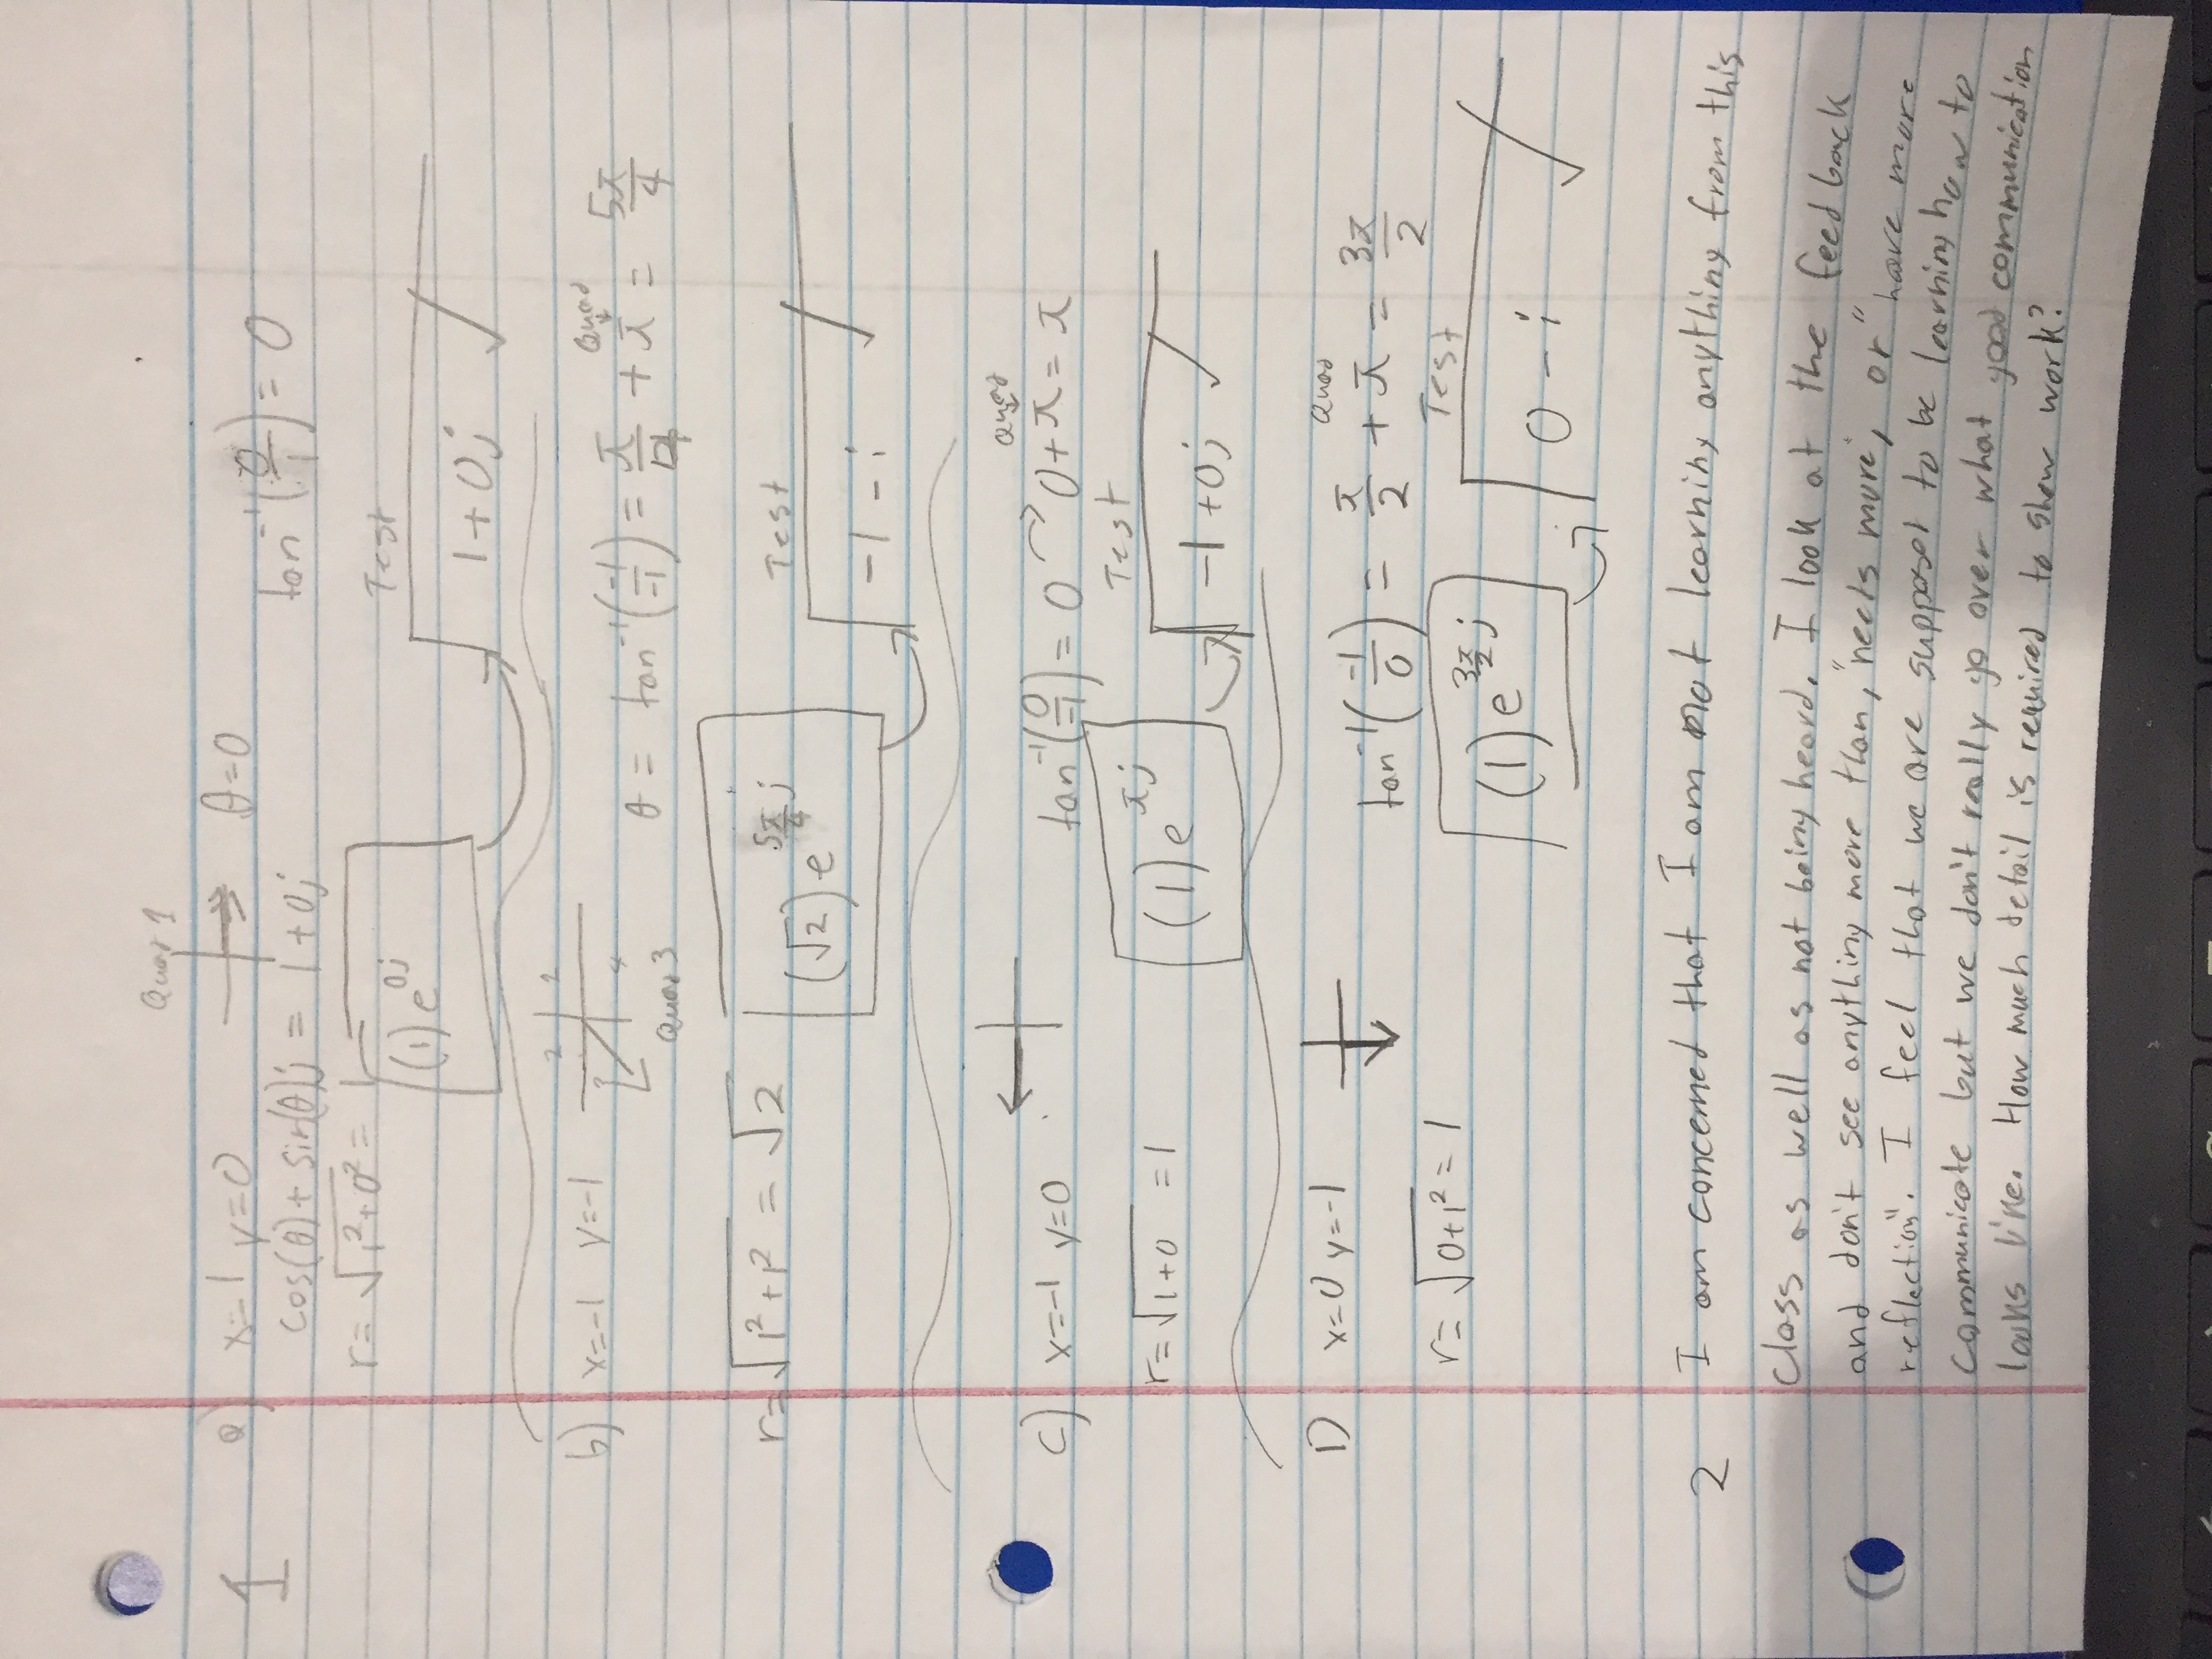 1
Quad 1
a) x=1 y=0 θ=0 tan⁻¹(0/1) = 0
cos(θ) + sin(θ)j = 1+0j
r= √(1²+0²) = 1
(1)e^(0j)
Test
1+0j ✓
b) x=-1 y=-1
2 1
3 4
Quad 3
Quad
θ = tan⁻¹(-1/-1) = π/4 + π = 5π/4
r= √(1²+1²) = √2
(√2)e^(5π/4 j)
Test
-1 -i ✓
C) x=-1 y=0
Quad
tan⁻¹(0/-1) = 0 → 0+π = π
r= √(1+0) = 1
(1)e^(πj)
Test
-1 +0j ✓
D) x=0 y=-1
Quad
tan⁻¹(-1/0) = π/2 + π = 3π/2
r= √(0+1²) = 1
(1)e^(3π/2 j)
Test
0 - i ✓
2 I am concerned that I am not learning anything from this
class as well as not being heard. I look at the feedback
and don't see anything more than, "needs more", or "have more
reflection". I feel that we are supposed to be learning how to
communicate but we don't really go over what good communication
looks like. How much detail is required to show work?